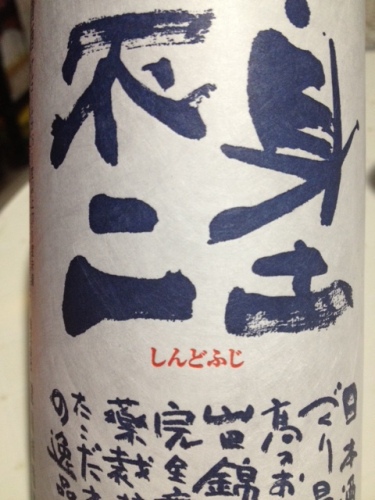 身土
不二
しんどふじ
日本酒
づくり
高のお
山田錦
完全
薬栽
こだ
の逸品